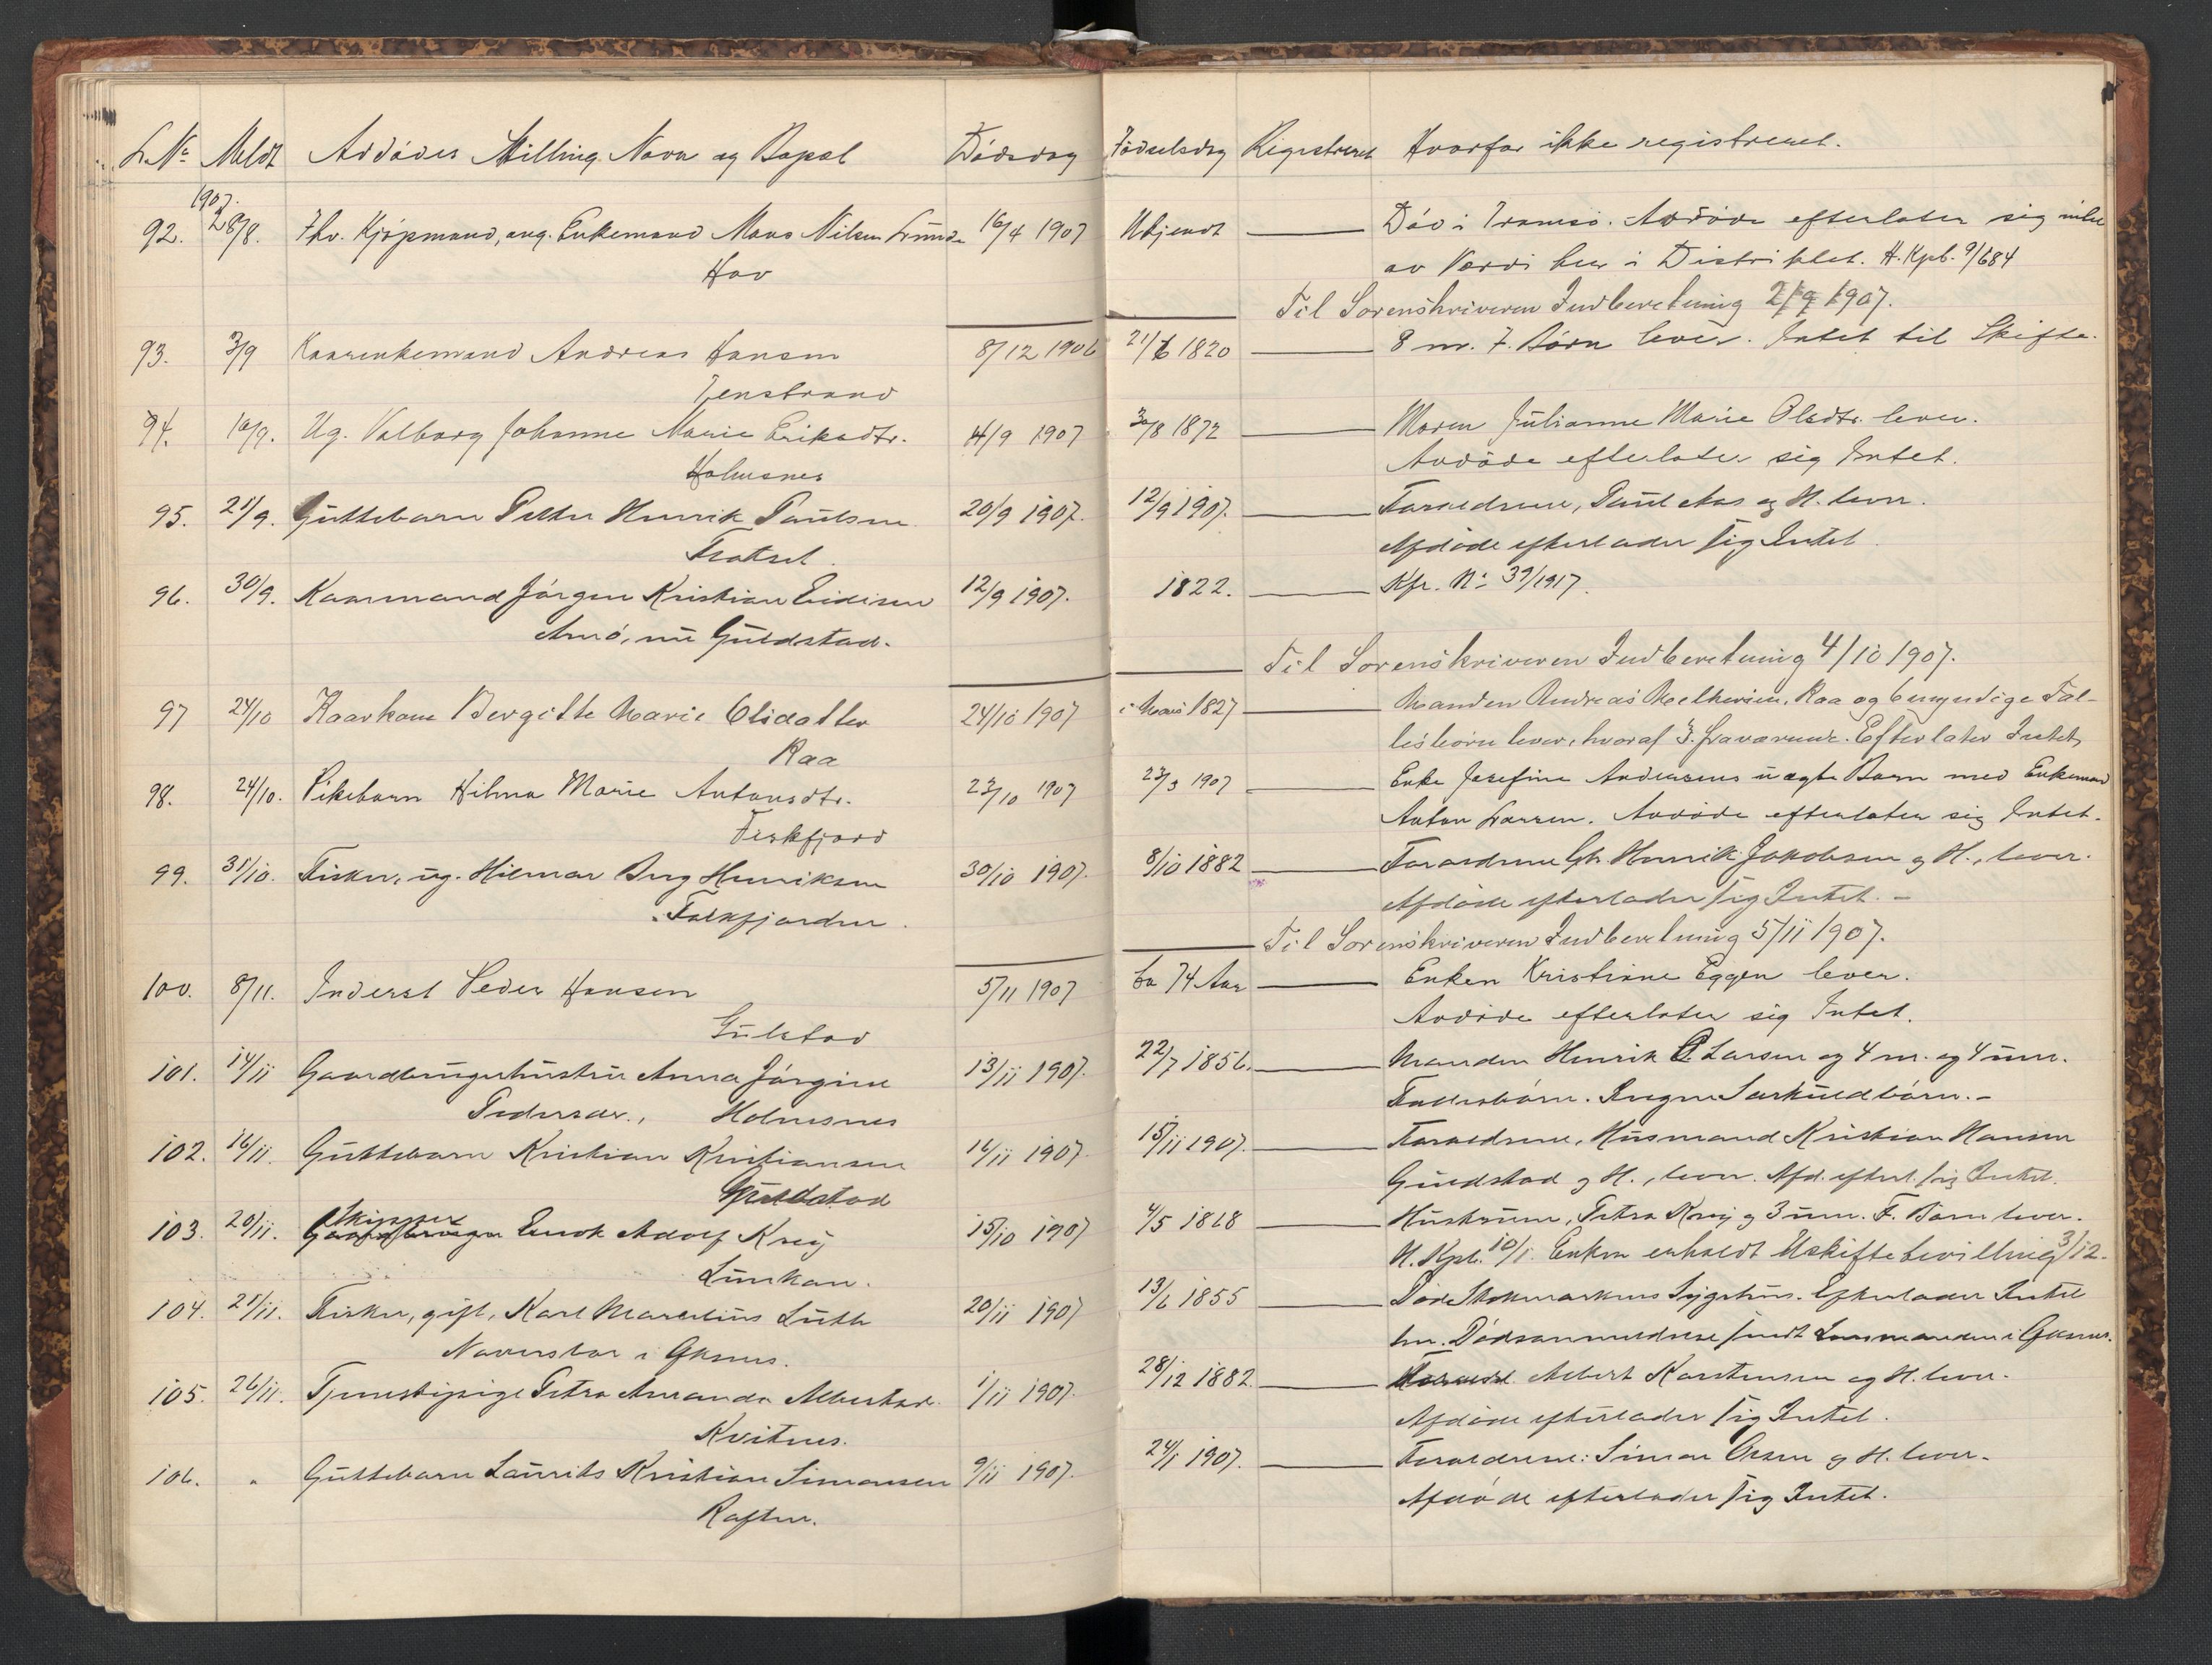 L.No Meldt Avdødes Stilling, Navn og Bopæl Dødsdag Fødselsdag Registreret Hvorfor ikke registreret.
1907.
92. 28/8. Fhv. Kjøpmand, ang. Enkemand Mons Nilsen Lunde 16/4 1907 Ukjendt — Død i Tromsø. Avdøde efterlater sig intet
Hov av Værdi her i Distriktet. H. Kpb. 9/684
Til Sorenskriveren Indberetning 2/9 1907.
93. 3/9 Kaarenkemand Andreas Hansen 8/12 1906 21/6 1820 — 8 m. F. Børn lever. Intet til Skifte.
94. 16/9. Ug. Valborg Johanne Marie Eriksdtr. 14/9 1907 30/8 1872 — Moren Julianne Marie Olsdtr. lever.
Holmsnes Avdøde efterlater sig Intet.
95. 21/9. Guttebarn Petter Henrik Paulsen 20/9 1907. 12/9 1907. — Forældrene, Paul Aas og H. lever.
Afdøde efterlader sig Intet.
96. 30/9. Kaarmand Jørgen Kristian Eidisen 12/9 1907. 1822. — Kfr. No 39/1917.
Arnø, nu Guldstad.
Til Sorenskriveren Indberetning 4/10 1907.
97 24/10 Kaarkone Bergitte Marie Olsdatter 24/10 1907 i Mars 1827 — Manden Andreas Melkersen, Raa og 6 myndige Fæl-
Raa lesbørn lever, hvoraf 3. fraværende. Efterlater Intet,
98. 24/10. Pikebarn Hilma Marie Antonsdtr. 23/10 1907 23/3 1907 — Enke Josefine Andersens uægte Barn med Enkemand
Fiskfjord Anton Larsen. Avdøde efterlater sig Intet.
99. 31/10. Fisker, ug. Hilmar Berg Henriksen 30/10 1907. 8/10 1882 — Forældrene Gb. Henrik Jakobsen og H., lever.
Falkfjorden. Afdøde efterlader sig Intet. –
Til Sorenskriveren Indberetning 5/11 1907.
100. 8/11. Inderst Peder Hansen 5/11 1907 ca 74 Aar — Enken Kristiane Eggen lever.
Gulstad Avdøde efterlater sig Intet.
101. 14/11 Gaardbrugerhustru Anna Jørgine 13/11 1907. 22/7 1856. — Manden Henrik P. Larsen og 4 m. og 4 um.
Pedersdr., Holmsnes Fællesbørn. Ingen Særkuldbørn. –
102. 16/11. Guttebarn Kristian Kristiansen 16/11 1907. 15/11 1907. — Forældrene, Husmand Kristian Hansen
Guldstad Guldstad og H., lever. Afd. efterl. sig Intet.
Skipper
103. 20/11. Gaardbruger Enok Adolf Krey 15/10 1907 4/5 1868 — Hustruen, Petra Krey og 3 um. F. Børn lever.
Lunkan. H. Kpb. 10/1. Enken erholdt Uskiftebevilling 3/12.
104. 21/11. Fisker, gift, Karl Marelius Luth 20/11 1907 13/6 1855 — Døde Stokmarknes Sygehus. Efterlader Intet
i Øksnes. her. Dødsanmeldelse sendt Lensmanden i Øksnes.
105. 26/11. Tjenestepige Petra Amanda Albertsdr. 1/11 1907. 28/12 1882. — Foræld. Albert Karstensen og H. lever.
Kvitnes. Afdøde efterlader sig Intet.
106. " Guttebarn Laurits Kristian Simonsen 9/11 1907. 24/1 1907. — Forældrene: Simon Olsen og H. lever.
Raften. Afdøde efterlader sig Intet.